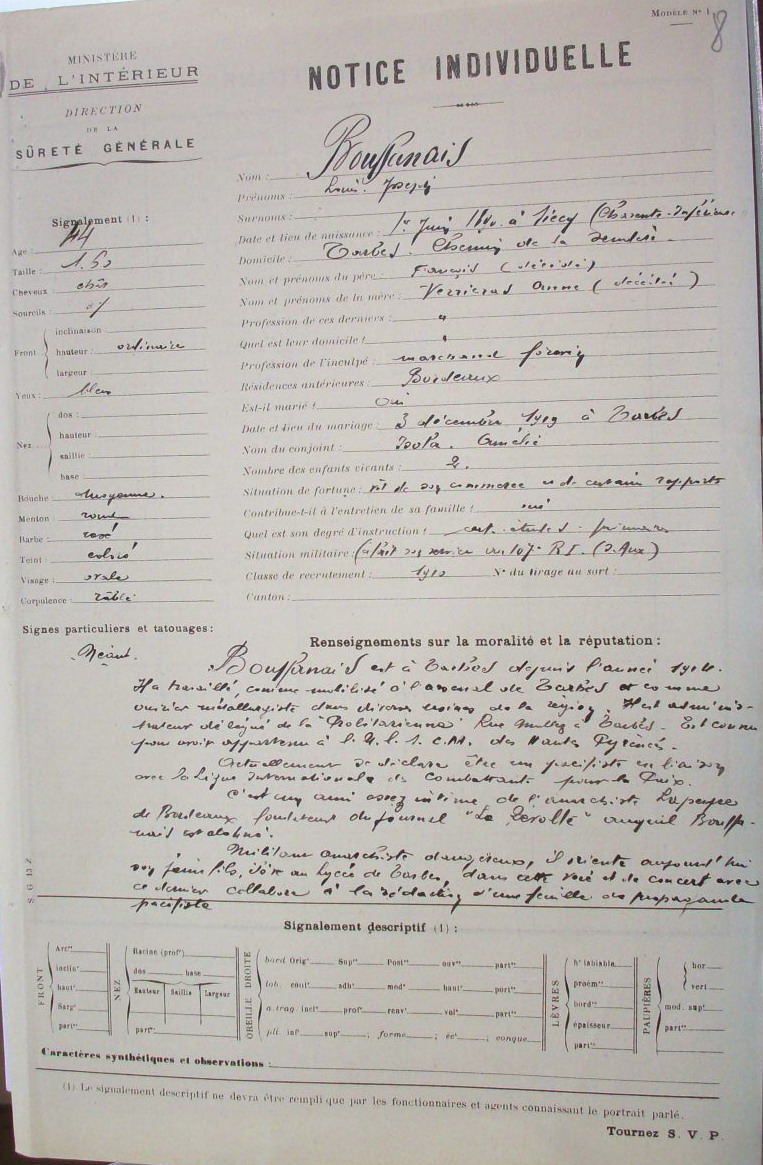 MODÈLE N° 1
8
MINISTÈRE
DE L'INTÉRIEUR
DIRECTION
DE LA
SÛRETÉ GÉNÉRALE
NOTICE INDIVIDUELLE
Nom : Boussanais
Prénoms : Louis Joseph
Surnoms :
Date et lieu de naissance : 1er Juin à (Charente-Inférieure
Domicile : Tarbes. Chemin de la
Nom et prénoms du père : François (décédé)
Nom et prénoms de la mère : Anne (décédée)
Profession de ces derniers : "
Quel est leur domicile ? "
Profession de l'inculpé : marchand forain
Résidences antérieures : Bordeaux
Est-il marié ? Oui
Date et lieu du mariage : 3 décembre 1919 à Tarbes
Nom du conjoint : Amélie
Nombre des enfants vivants : 2.
Situation de fortune : vit de son commerce et de certains rapports
Contribue-t-il à l'entretien de sa famille ? oui
Quel est son degré d'instruction ? cert. études primaires
Situation militaire : (a fait son service au 107e R.I. )
Classe de recrutement : 1910 N° du tirage au sort :
Canton :
Signalement (1) :
Age : 44
Taille : 1.62
Cheveux : chât
Sourcils : d°
Front
inclinaison
hauteur : ordinaire
largeur :
Yeux : bleu
Nez
dos :
hauteur :
saillie :
base :
Bouche : moyenne.
Menton : rond
Barbe : rasé
Teint : coloré
Visage : ovale
Corpulence : râblé
Signes particuliers et tatouages :
Néant.
Renseignements sur la moralité et la réputation :
Boussanais est à Tarbes depuis l'année 1914.
Il a travaillé, comme mobilisé à l'arsenal de Tarbes et comme
ouvrier métallurgiste dans diverses usines de la région. Il est adminis-
trateur délégué de la "Prolétarienne" Rue à Tarbes. Est connu
pour avoir appartenu à l' des Hautes Pyrénées.
Actuellement se déclare être un pacifiste en liaison
avec la Ligue Internationale des Combattants pour la Paix.
C'est un ami assez intime de l'anarchiste Lapeyre
de Bordeaux fondateur du journal "La Révolte" auquel Boussa-
nais est abonné.
Militant anarchiste dangereux, il oriente aujourd'hui
son jeune fils, élève au Lycée de Tarbes, dans cette voie et de concert avec
ce dernier collabore à la rédaction d'une feuille de propagande
pacifiste
S G 13 Z
Signalement descriptif (1) :
FRONT
Arc
inclin
haut
larg
part
NEZ
Racine (prof)
dos base
Hauteur Saillie Largeur
part
OREILLE DROITE
bord Orig Sup Post ouv part
lob. cont adh mod haut part
a.trag incl prof renv vol part
pli. inf sup ; forme ; éc ; conque
LÈVRES
h labiale
proém
bord
épaisseur
part
PAUPIÈRES
hor
vert
mod. sup
part
Caractères synthétiques et observations :
(1) Le signalement descriptif ne devra être rempli que par les fonctionnaires et agents connaissant le portrait parlé.
Tournez S. V. P.